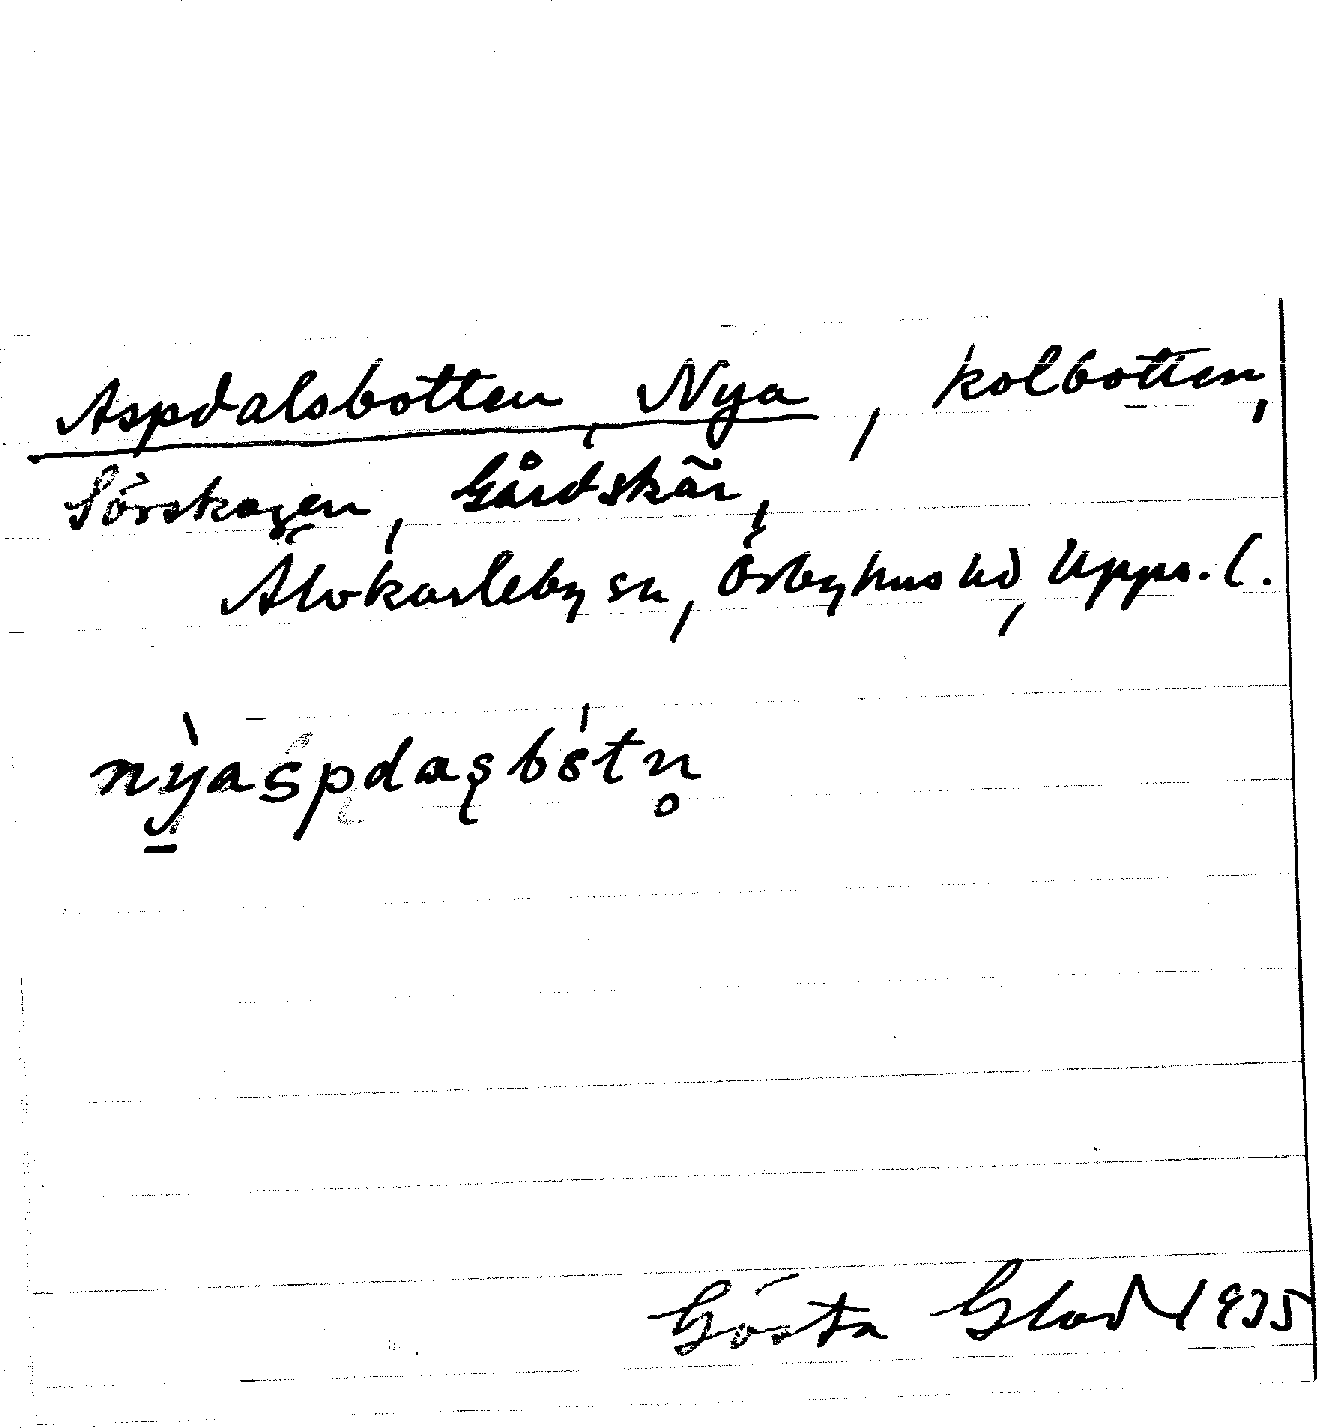 Aspdalsbotten, Nya, kolbotten,
Sörskogen, Gårdskär,
Älvkarleby sn, Örbyhus hd, Upps. l.
nỳaspdaʂbótn̥
Gösta Glad 1935